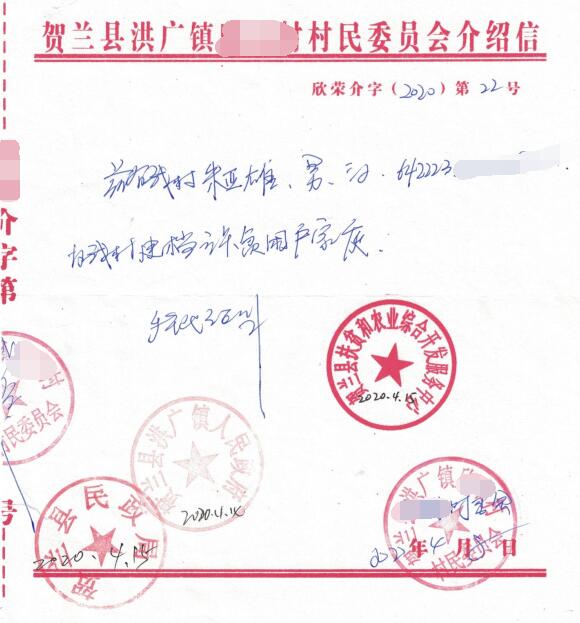 贺兰县洪广镇 村村民委员会介绍信
欣荣介字(2020)第22号
兹有我村朱亚雄、男、汉、642223
为我村建档立卡贫困户家庭.
手续已
贺兰县扶贫和农业综合开发服务中心
2020.4.15
贺兰县洪广镇人民政府
2020.4.14
贺兰县民政局
2020.4.15
贺兰县洪广镇
村民委员会
年4月 日
介字第
号
村民委员会